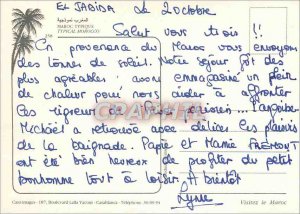 EL JADIDA le 2 Octobre
المغرب نموذجية
MAROC TYPIQUE
TYPICAL MOROCCO
Salut vous trois !!
En provenance du Maroc vous envoyons
des tonnes de soleil. Notre séjour fût des
plus agréables ; avons emmagasiné un plein
de chaleur pour nous aider à affronter
les rigueurs de
Mickaël a retrouvé avec délices les plaisirs
de la baignade. Papie et Mamie FREMONT
ont été bien heureux de profiter du petit
bonhomme tout à loisir. A bientôt
Lynne
Casa Images - 187, Boulevard Lalla Yacout - Casablanca - Téléphone :
VISITEZ LE MAROC